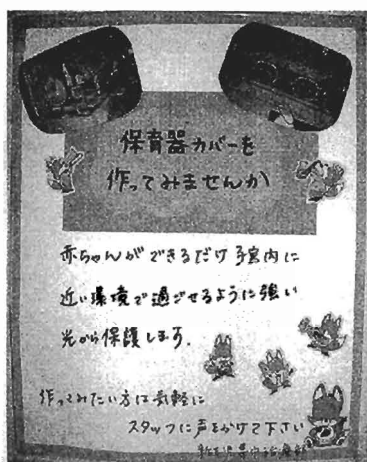 保育器カバーを
作ってみませんか
赤ちゃんができるだけ子宮内に
近い環境で過ごせるように強い
光から保護します.
作ってみたい方は気軽に
スタッフに声をかけて下さい
新生児集中治療部